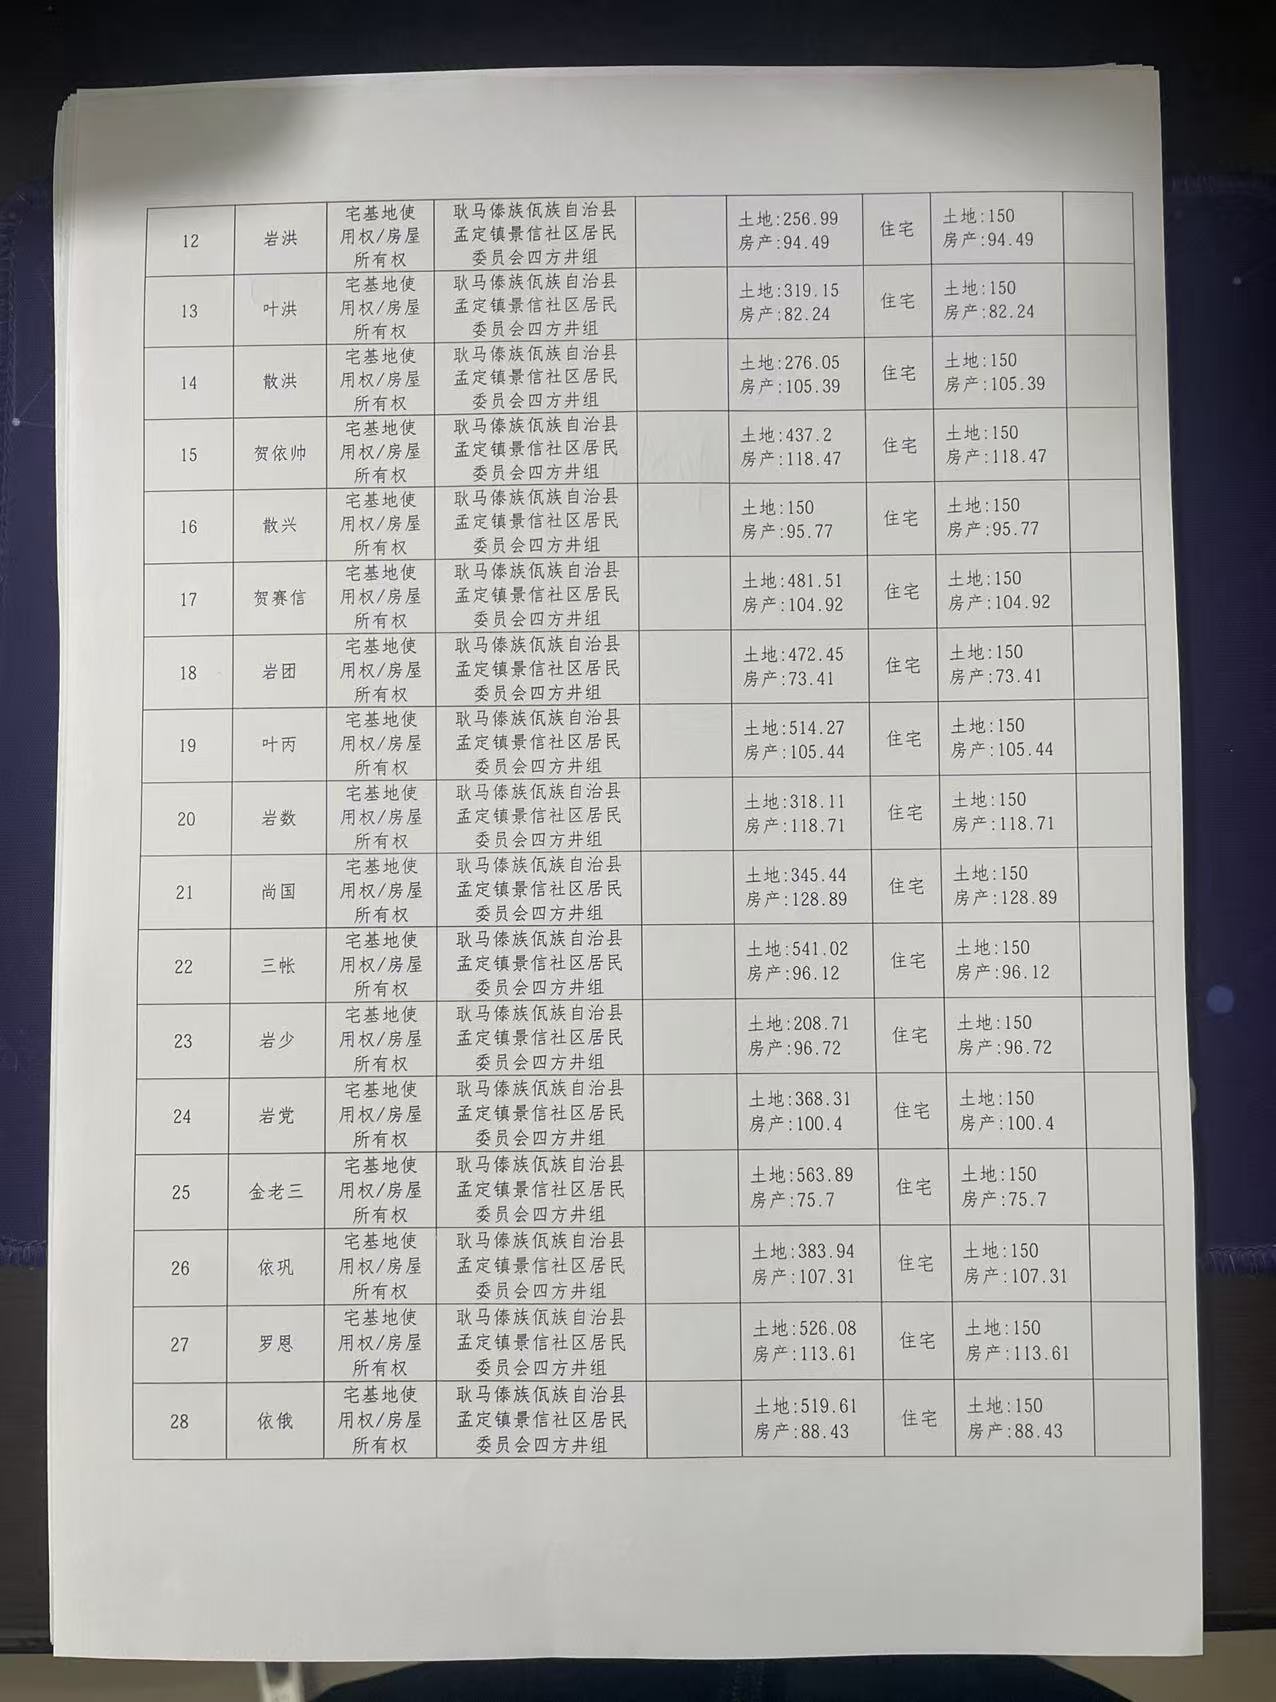 12 岩洪 宅基地使用权/房屋所有权 耿马傣族佤族自治县孟定镇景信社区居民委员会四方井组 土地:256.99 房产:94.49 住宅 土地:150 房产:94.49
13 叶洪 宅基地使用权/房屋所有权 耿马傣族佤族自治县孟定镇景信社区居民委员会四方井组 土地:319.15 房产:82.24 住宅 土地:150 房产:82.24
14 散洪 宅基地使用权/房屋所有权 耿马傣族佤族自治县孟定镇景信社区居民委员会四方井组 土地:276.05 房产:105.39 住宅 土地:150 房产:105.39
15 贺依帅 宅基地使用权/房屋所有权 耿马傣族佤族自治县孟定镇景信社区居民委员会四方井组 土地:437.2 房产:118.47 住宅 土地:150 房产:118.47
16 散兴 宅基地使用权/房屋所有权 耿马傣族佤族自治县孟定镇景信社区居民委员会四方井组 土地:150 房产:95.77 住宅 土地:150 房产:95.77
17 贺赛信 宅基地使用权/房屋所有权 耿马傣族佤族自治县孟定镇景信社区居民委员会四方井组 土地:481.51 房产:104.92 住宅 土地:150 房产:104.92
18 岩团 宅基地使用权/房屋所有权 耿马傣族佤族自治县孟定镇景信社区居民委员会四方井组 土地:472.45 房产:73.41 住宅 土地:150 房产:73.41
19 叶丙 宅基地使用权/房屋所有权 耿马傣族佤族自治县孟定镇景信社区居民委员会四方井组 土地:514.27 房产:105.44 住宅 土地:150 房产:105.44
20 岩数 宅基地使用权/房屋所有权 耿马傣族佤族自治县孟定镇景信社区居民委员会四方井组 土地:318.11 房产:118.71 住宅 土地:150 房产:118.71
21 尚国 宅基地使用权/房屋所有权 耿马傣族佤族自治县孟定镇景信社区居民委员会四方井组 土地:345.44 房产:128.89 住宅 土地:150 房产:128.89
22 三帐 宅基地使用权/房屋所有权 耿马傣族佤族自治县孟定镇景信社区居民委员会四方井组 土地:541.02 房产:96.12 住宅 土地:150 房产:96.12
23 岩少 宅基地使用权/房屋所有权 耿马傣族佤族自治县孟定镇景信社区居民委员会四方井组 土地:208.71 房产:96.72 住宅 土地:150 房产:96.72
24 岩党 宅基地使用权/房屋所有权 耿马傣族佤族自治县孟定镇景信社区居民委员会四方井组 土地:368.31 房产:100.4 住宅 土地:150 房产:100.4
25 金老三 宅基地使用权/房屋所有权 耿马傣族佤族自治县孟定镇景信社区居民委员会四方井组 土地:563.89 房产:75.7 住宅 土地:150 房产:75.7
26 依巩 宅基地使用权/房屋所有权 耿马傣族佤族自治县孟定镇景信社区居民委员会四方井组 土地:383.94 房产:107.31 住宅 土地:150 房产:107.31
27 罗恩 宅基地使用权/房屋所有权 耿马傣族佤族自治县孟定镇景信社区居民委员会四方井组 土地:526.08 房产:113.61 住宅 土地:150 房产:113.61
28 依俄 宅基地使用权/房屋所有权 耿马傣族佤族自治县孟定镇景信社区居民委员会四方井组 土地:519.61 房产:88.43 住宅 土地:150 房产:88.43